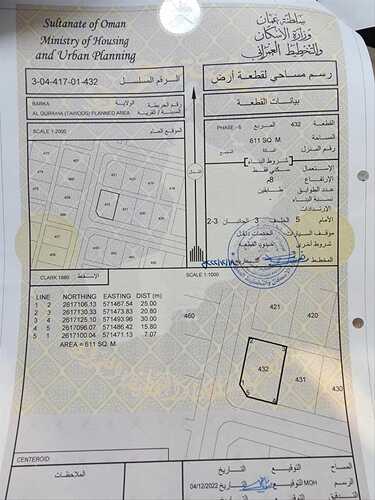 Sultanate of Oman
Ministry of Housing
and Urban Planning
سلطنة عمان
وزارة الإسكان
والتخطيط العمراني
3-04-417-01-432
الرقم المسلسل
رسم مساحي لقطعة أرض
BARKA
الولاية
رقم الخريطة
AL QURAHA (TARODS) PLANNED AREA
المدينة / القرية
SCALE 1:2000
الموقع العام
بيانات القطعة
القطعة 432 المربع PHASE-6
المساحة 611 SQ. M
رقم المنزل السكة
شروط البناء
الاستعمال سكني فقط
الارتفاع 8م
عدد الطوابق طابقين
نسبة البناء
الارتدادات
الأمام 5 الخلف 3 الجانبان 2-3
موقف السيارات
شروط أخرى حدود القطعة
المخطط
الشمال
CLARK 1880
SCALE 1:1000
LINE NORTHING EASTING DIST (m)
1 2 2617106.13 571467.54 25.00
2 3 2617130.33 571473.83 20.80
3 4 2617125.10 571493.96 30.00
4 5 2617096.07 571486.42 15.80
5 1 2617100.04 571471.13 7.07
AREA = 611 SQ. M
460
421
420
432
431
430
CENTEROID
الملاحظات
المساح التوقيع التاريخ
الرسم MOH التوقيع التاريخ 04/12/2022
التدقيق التوقيع التاريخ